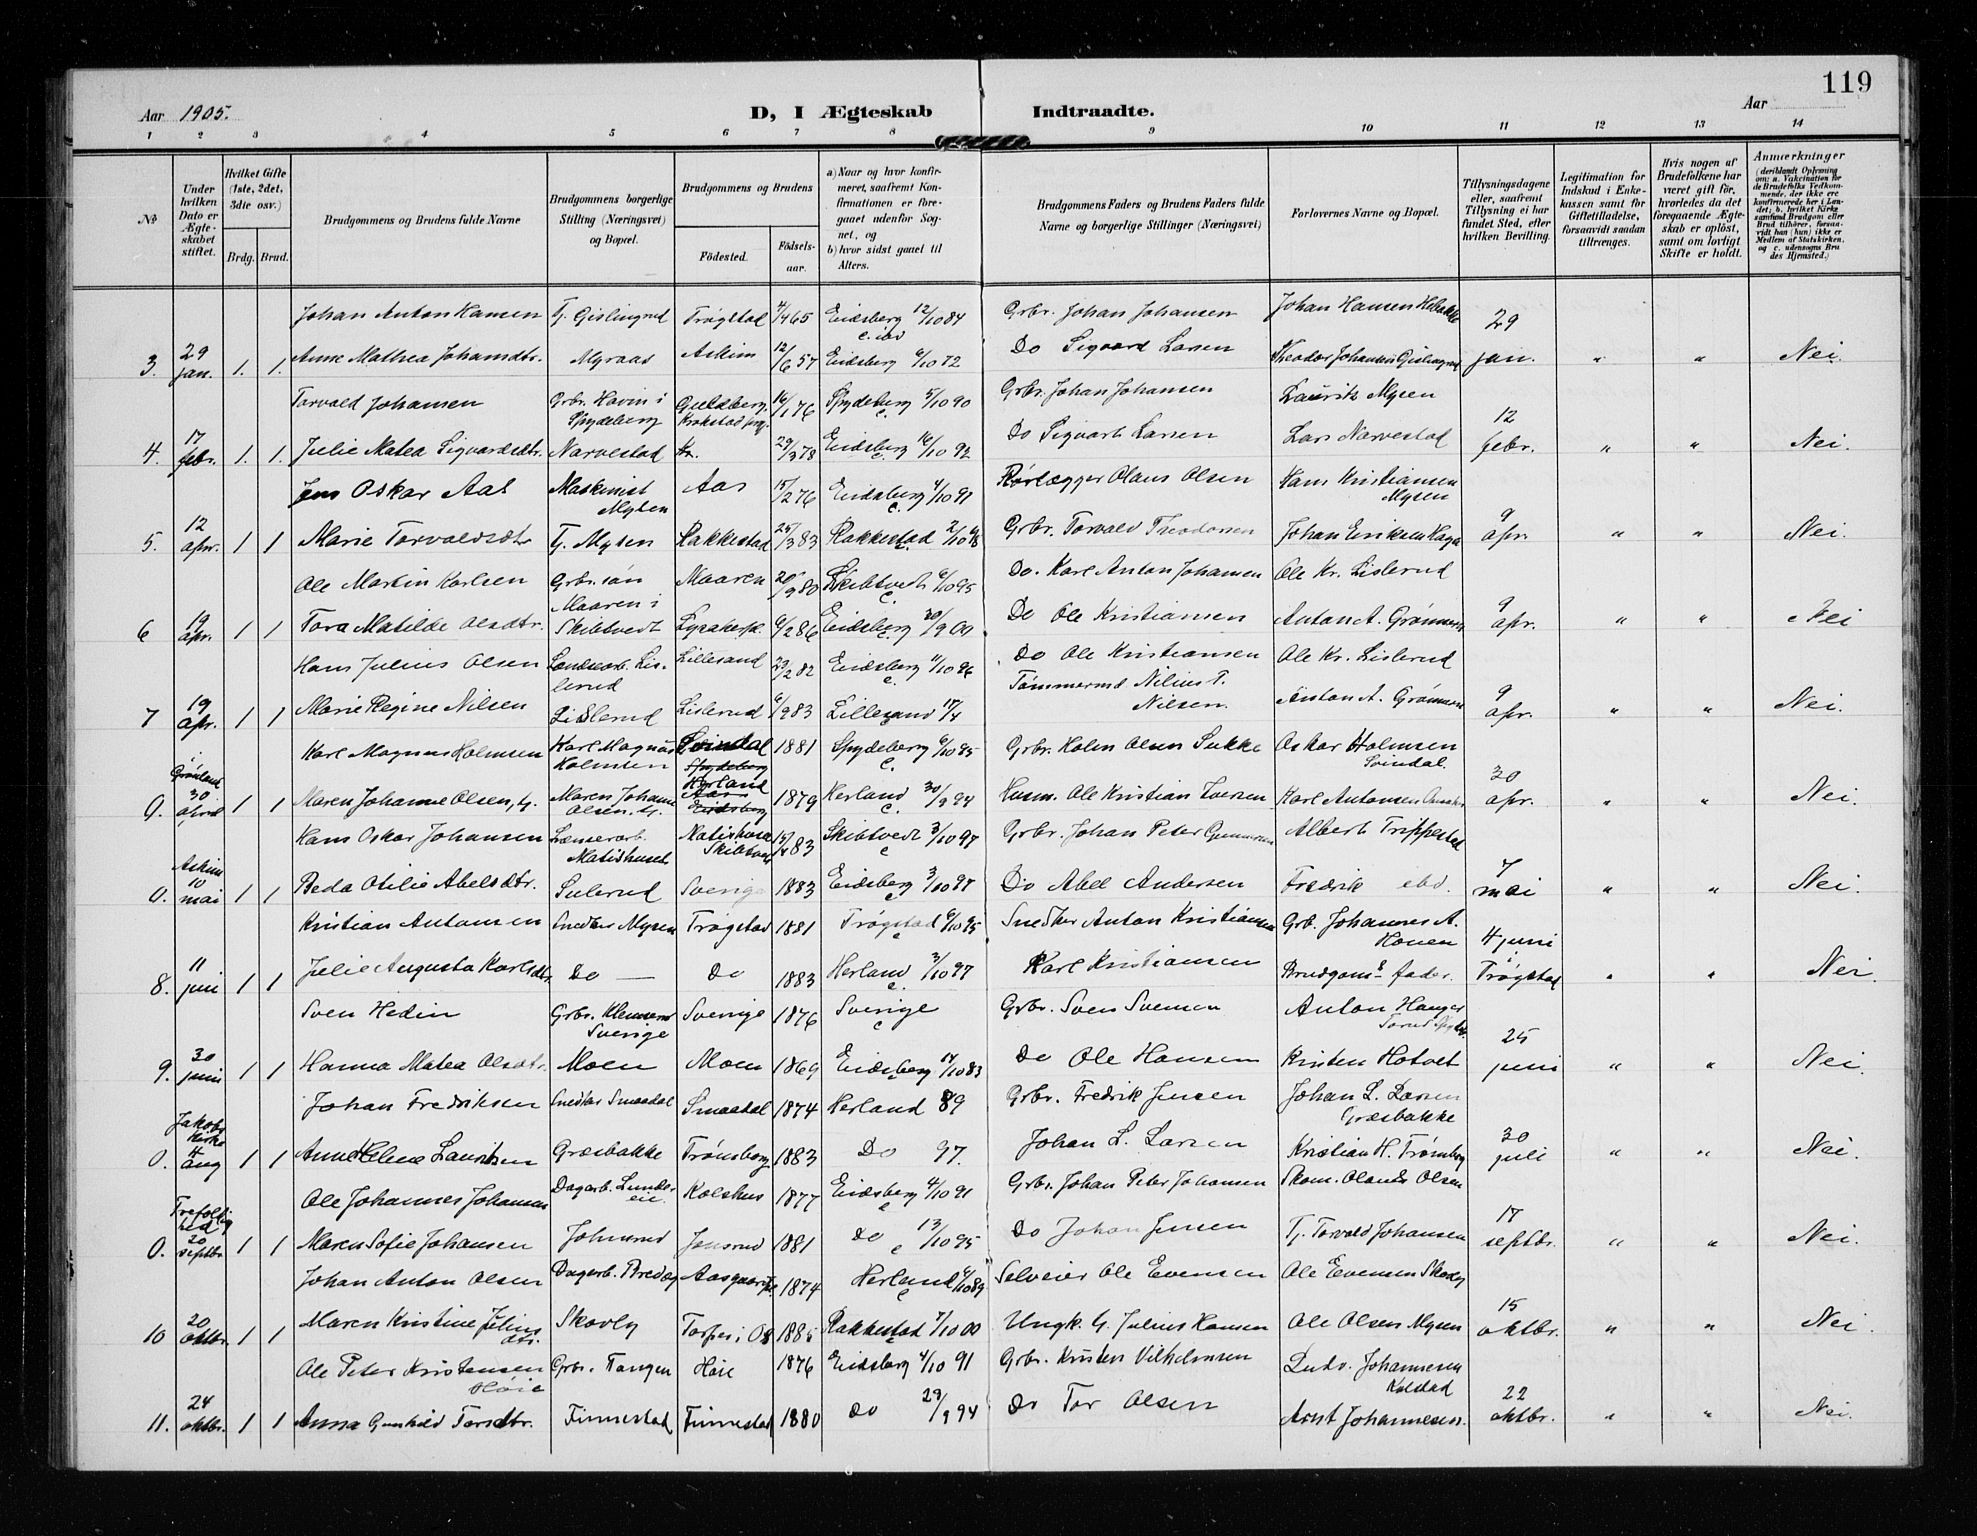 119
Aar 1905.
D, I Ægteskab Indtraadte.
Aar
1 2 3 4 5 6 7 8 9 10 11 12 13 14
No
Under hvilken Dato er Ægteskabet stiftet.
Hvilket Gifte (1ste, 2det, 3die osv.)
Brdg. Brud.
Brudgommens og Brudens fulde Navne
Brudgommens borgerlige Stilling (Næringsvei) og Bopæl.
Brudgommens og Brudens
Fødested.
Fødselsaar.
a) Naar og hvor konfirmeret, saafremt Konfirmationen er foregaaet udenfor Sognet, og
b) hvor sidst gaaet til Alters.
Brudgommens Faders og Brudens Faders fulde Navne og borgerlige Stillinger (Næringsvei)
Forlovernes Navne og Bopæl.
Tillysningsdagene eller, saafremt Tillysning ei har fundet Sted, efter hvilken Bevilling.
Legitimation for Indskud i Enkekassen samt for Giftetilladelse, forsaavidt saadan tiltrænges.
Hvis nogen af Brudefolkene har været gift før, hvorledes da det foregaaende Ægteskab er opløst, samt om lovligt Skifte er holdt.
Anmærkninger
(deriblandt Oplysning om: a. Vakcination for de Brudefolks Vedkommende, der ikke ere konfirmerede her i Landet; b. hvilket Kirkesamfund Brudgom eller Brud tilhører, forsaavidt han (hun) ikke er Medlem af Statskirken, og c. udensogns Brudes Hjemsted.)
Johan Anton Hansen G. Gislingrud Trøgstad 4/4 65 Eidsberg 12/10 84 Grbr. Johan Johansen Johan Hansen
3. 29 jan. 1. 1. Anne Mathea Johansdtr. Myraas Askim 12/6 57 Eidsberg 6/10 72 Do Sigvard Larsen Theodor Johansen Gislingrud 29 jan. " " Nei.
Torvald Johansen Grbr. Havin i Spydeberg Guldberg, Krokstad 16/1 76 Spydeberg 5/10 90 c. Grbr. Johan Johansen Laurits Mysen
4. 17 febr. 1. 1. Julie Matea Sigvardsdtr. Narvestad 29/3 78 Eidsberg 16/10 92 c. Do Sigvart Larsen Lars Narvestad 12 febr. " " Nei.
Jens Oskar Aas Maskinist Mysen Aas 15/2 76 Eidsberg 4/10 91 c. Rørlægger Olaus Olsen Hans Kristiansen Mysen
5. 12 apr. 1 1 Marie Torvaldsdtr G. Mysen Rakkestad 25/3 83 Rakkestad 2/10 98 c. Grbr. Torvald Theodorsen Johan Eriksen Haga 9 apr. " " Nei.
Ole Martin Karlsen Grbr.søn Maaren i Skibtvedt Maaren 20/9 80 Skibtvedt 6/10 95 c. Do. Karl Anton Johansen Ole Kr. Lislerud
6 19 apr. 1 1 Tora Matilde Olsdtr. 6/2 86 Eidsberg 30/9 00 c. Do Ole Kristiansen Anton A. Grønnern 9 apr. " " Nei
Hans Julius Olsen Landearb. Lislerud Lillesand 23/2 82 Eidsberg 11/10 96 c. Do Ole Kristiansen Ole Kr. Lislerud
7 19 apr. 1 1 Marie Regine Nilsen Lislerud Lislerud 6/9 83 Lillesand 17/4 Tømmermd Nilius T. Nilsen Anton A. Grønnern 9 apr. " " Nei.
Karl Magnus Holmsen Karl Magnus Holmsen Svindal Spydeberg 1881 Spydeberg 6/10 95 c. Grbr. Holm Olsen Sukke Oskar Holmsen Svindal.
0. Grønland 30 april 1 1 Maren Johanne Olsen, G. Maren Johanne Olsen. G. Herland Aas Eidsberg 1879 Herland 30/9 94 c. Husm. Ole Kristian Iversen Karl Antonsen 30 apr. " " Nei.
Hans Oskar Johansen Matishuset Matishuset Skibtvedt 15/4 83 Skibtvedt 3/10 97 c Grbr. Johan Peter Gunnersen Albert Trippestad
0. Askim 10 mai 1 1 Beda Otilie Abelsdtr. Sulerud Sverige 1883 Eidsberg 3/10 97 c Do Abel Andersen Fredrik ebd. 7 mai " " Nei.
Kristian Antonsen Snedker Mysen Trøgstad 1881 Trøgstad 6/10 95 c Snedker Anton Kristiansen Grb. Johannes A. Hauen
8. 11 juni 1 1 Julie Augusta Karlsdtr. Do — Do 1883 Herland 3/10 97 c. Karl Kristiansen Brudgoms fader. 4 juni i Trøgstad " " Nei.
Sven Hedin Grbr. Sverige Sverige 1876 Sverige c Grbr. Sven Svensen Anton Hauger
9. 30 juni 1 1 Hanna Matea Olsdtr. Moen Moen 1869 Eidsberg 14/10 83 Do Ole Hansen Kristen Hotvet 25 juni " " Nei.
Johan Fredriksen Snedker Smaadal Smaadal 1874 Herland 89 Grbr. Fredrik Jensen Johan L. Larsen Græsbakke
0. Jakobs Kirke 4 aug 1 1 Anne Helene Lauritsen Græsbakke Trønsborg 1883 Do 97. Johan L. Larsen Kristian H. Trømborg 30 juli " " Nei.
Ole Johannes Johansen Dagarb. Lunderseie Kolshus 1877 Eidsberg 4/10 91 c Grbr. Johan Peter Johansen Skom. Olaus Olsen
0. Trefoldighed 20 septbr. 1 1 Maren Sofie Johansen Johnsrud Jonsrud 1881 Do 13/10 95 c Do Johan Jensen Tj. Torvald Johansen 17 septbr. " " Nei.
Johan Anton Olsen Dagarb. 1874 Herland 6/10 89 c Selveier Ole Evensen Ole Evensen Skovby
10 20 oktbr. 1 1 Maren Kristine Juliusdtr. Skovby Torper i Os 1885 Rakkestad 7/10 00 Ungk. G. Julius Hansen Ole Olsen Mysen 15 oktbr. " " Nei.
Ole Peter Kristensen Høie Grbr. Tangen Høie 1876 Eidsberg 4/10 91 Grbr. Kristen Vilhelmsen Ludv. Johannesen Kolstad
11. 24 oktbr. 1 1 Anna Gunhild Torsdtr. Finnestad Finnestad 1880 Do 29/9 94 Do Tor Olsen Arnt Johannesen. 22 oktbr. " " Nei.